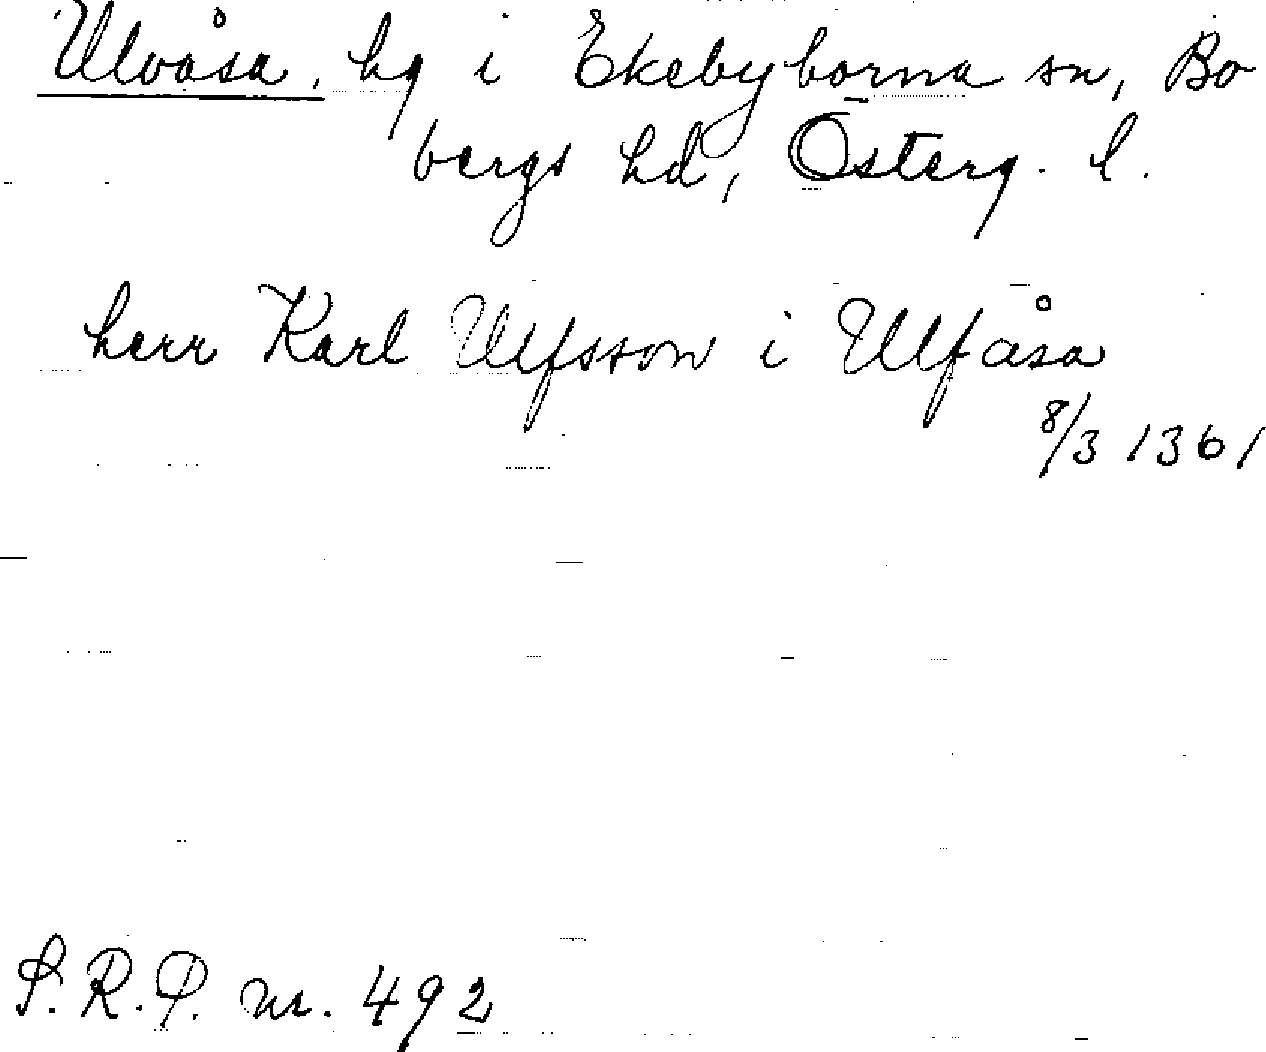 Ulvåsa, hg i Ekebyborna sn, Bo
bergs hd, Österg. l.
herr Karl Ulfsson i Ulfåsa
8/3 1361
S.R.P. nr. 492